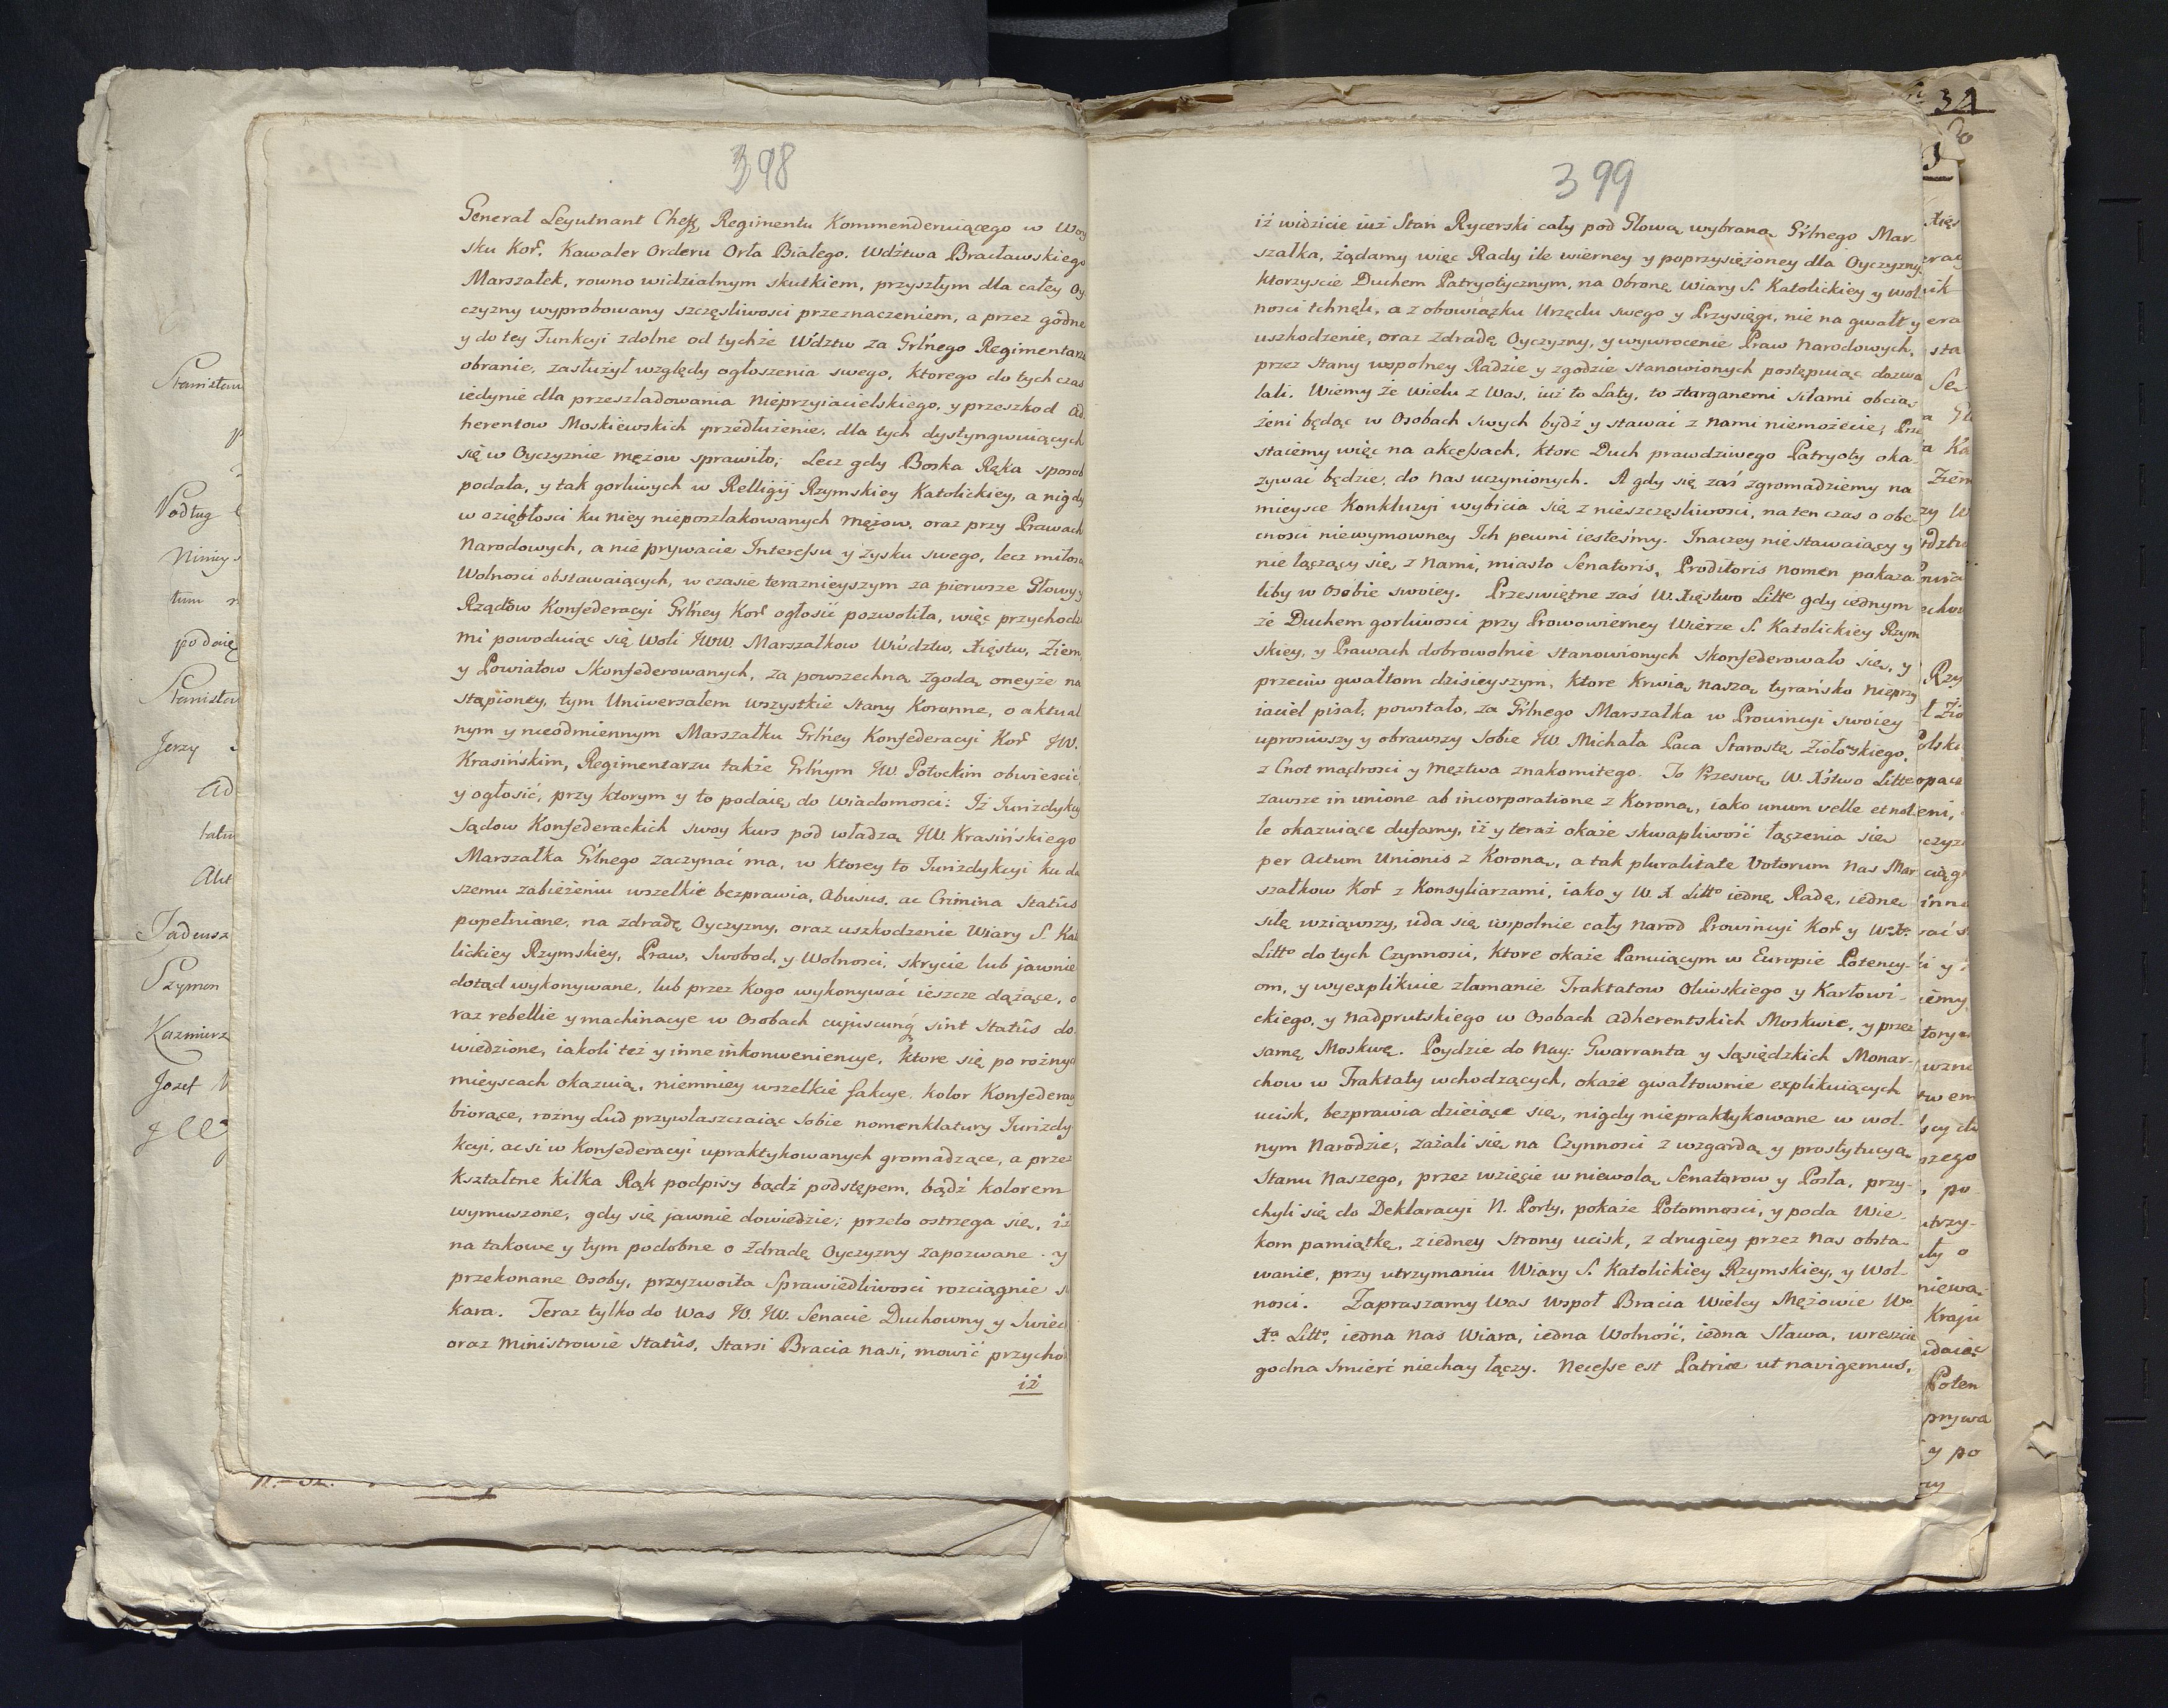 398
Generał Leyutnant Cheff, Regimentu Kommenderuiącego w Woy
sku Kor. Kawaler Orderu Orła Białego. Wdztwa Bracławskiego
Marszałek, rowno widzialnym skutkiem, przyszłym dla całey Oy
czyzny wyprobowany szczęsliwosci przeznaczeniem, a przez godne
y do tey Funkcyi zdolne od tychże Wdztw za Grlnego Regimentarza
obranie, zasłużył względy ogłoszenia swego, ktorego do tych czas
iedynie dla przeszladowania Nieprzyiacielskiego, y przeszkod Ad
herentow Moskiewskich przedłużenie, dla tych dystyngwuiących
się w Oyczyznie mężow sprawiło; Lecz gdy Boska Ręka sposob
podała, y tak gorliwych w Relligij Rzymskiey Katolickiey, a nigdy
w oziębłosci ku niey nieposzlakowanych mężow, oraz przy Prawach
Narodowych, a nie prywacie Interessu y zysku swego, lecz miłosci
Wolnosci obstawaiących, w czasie teraznieyszym za pierwsze Głowy y
Rządcow Konfederacyi Grlney Kor ogłosić pozwoliła, więc przychodzi
mi powoduiąc się Woli JWW. Marszałkow Wwdztw, Xięstw, Ziem,
y Powiatow Skonfederowanych, za powszechną zgodą oneyże na
stąpioney, tym Uniwersałem wszystkie Stany Koronne, o aktual
nym y nieodmiennym Marszałku Grlney Konfederacyi Kor JW.
Krasińskim, Regimentarzu także Grlnym JW. Potockim obwieścić,
y ogłosić, przy ktorym y to podaię do Wiadomosci: Iż Iurizdykcya
Sądow Konfederackich swoy kurs pod władzą JW. Krasińskiego
Marszałka Grlnego zaczynać ma, w ktorey to Iurizdykcyi ku dal
szemu zabieżeniu wszelkie bezprawia, Abusus, ac Crimina Status
popełnione, na zdradę Oyczyzny, oraz uszkodzenie Wiary S. Kato
lickiey Rzymskiey, Praw, Swobod, y Wolnosci, skrycie lub jawnie
dotąd wykonywane, lub przez kogo wykonywać ieszcze dążące, o
raz rebellie y machinacye w Osobach cujuscunq sint Status do
wiedzione, iakoli też y inne inkonweniencye, ktore się po rożnych
mieyscach okazuią, niemniey wszelkie fakcye, kolor Konfederacyi
biorące, rożny Lud przywłaszczaiąc sobie nomenklatury Iurizdy
kcyi, acsi w Konfederacyi upraktykowanych gromadzące, a przez
kształtne kilka Rąk podpisy bądź podstępem, bądź kolorem
wymuszone, gdy się jawnie dowiedzie; przeto ostrzega się, iż
na takowe y tym podobne o Zdradę Oyczyzny zapozwane y
przekonane Osoby, przyzwoita Sprawiedliwosci rozciągnie się
kara. Teraz tylko do Was W. JW. Senacie Duchowny y Swiecki
oraz Ministrowie Status, Starsi Bracia nasi, mowić przychodzi
iż
399
iż widzicie iuż Stan Rycerski cały pod Głową wybraną Grlnego Mar-
szałka, żądamy więc Rady ile wierney y poprzysiężoney dla Oyczyzny,
ktorzyscie Duchem Patryotycznym, na Obronę Wiary S. Katolickiey y wol-
nosci tchnęli, a z obowiązku Urzędu swego y Przysięgi, nie na gwałt y
uszkodzenie, oraz Zdradę Oyczyzny, y wywrocenie Praw Narodowych,
przez Stany wspolney Radzie y zgodzie stanowionych postępuiąc dozwa
lali. Wiemy że wielu z Was, iuż to Laty, to ztarganemi siłami obcią-
żeni będąc w Osobach swych bydź y stawać z Nami niemożecie; Prze
staiemy więc na akcessach, ktore Duch prawdziwego Patryoty oka-
zywać będzie, do Nas uczynionych. A gdy się zaś zgromadziemy na
mieysce Konkluzyi wybicia się z nieszczęsliwosci, na ten czas o obe-
cnosci niewymowney Ich pewni iesteśmy. Inaczey nie stawaiący y
nie łączący się z Nami, miasto Senatoris, Proditoris nomen pokaza
liby w Osobie swoiey. Przeświętne zaś W. Xięstwo Litte gdy iednym
że Duchem gorliwosci przy Prowowierney Wierze S. Katolickiey Rzym
skiey, y Prawach dobrowolnie stanowionych skonfederowało się, y
przeciw gwałtom dzisieyszym, ktore krwią naszą tyrańsko Nieprzy
iaciel pisał, powstało, za Grlnego Marszałka w Prowincyi swoiey
uprosiwszy y obrawszy sobie JW. Michała Paca Starostę Ziołowskiego,
z Cnot mądrosci y męztwa znakomitego. To Przeswę. W. Xstwo Litte
zawsze in unione ab incorporatione z Koroną, iako unum velle et nol
le okazuiące dufamy, iż y teraż okaże skwapliwość łączenia się
per Actum Unionis z Koroną, a tak pluralitate Votorum Nas Mar
szałkow Kor z Konsyliarzami, iako y W. X. Litto iednę Radę, iednę
siłę wziąwszy, uda się wspolnie cały Narod Prowincyi Kor y W. X.
Litto do tych Czynnosci, ktore okaże Panuiącym w Europie Potency-
om, y wyexplikuie złamanie Traktatow Oliwskiego y Karłowi-
ckiego, y Nadprutskiego w Osobach Adherentskich Moskwie, y przez
samę Moskwę. Poydzie do Nay: Gwarranta y Sąsiędzkich Monar-
chow w Traktaty wchodzących, okaże gwałtownie explikuiących
ucisk, bezprawia dzieiące się, nigdy niepraktykowane w wol-
nym Narodzie, zażali się na Czynnosci z wzgardą y prostytucyą
Stanu Naszego, przez wzięcie w niewolą Senatorow y Posła, przy-
chyli się do Deklaracyi N. Porty, pokaże Potomnosci, y poda Wie-
kom pamiątkę, z iedney Strony ucisk, z drugiey przez Nas obsta-
wanie, przy utrzymaniu Wiary S. Katolickiey Rzymskiey, y Wol-
nosci. Zapraszamy Was Wspoł Bracia Wielcy Mężowie Wo
Xa Litto, iedna Nas Wiara, iedna Wolność, iedna Sława, wreszcie
godna Smierć niechay łączy. Necesse est Patriæ ut navigemus,
Stanisław
Podług
Jerzy
Tadeusz
Szymon
Kazmierz
Jozef